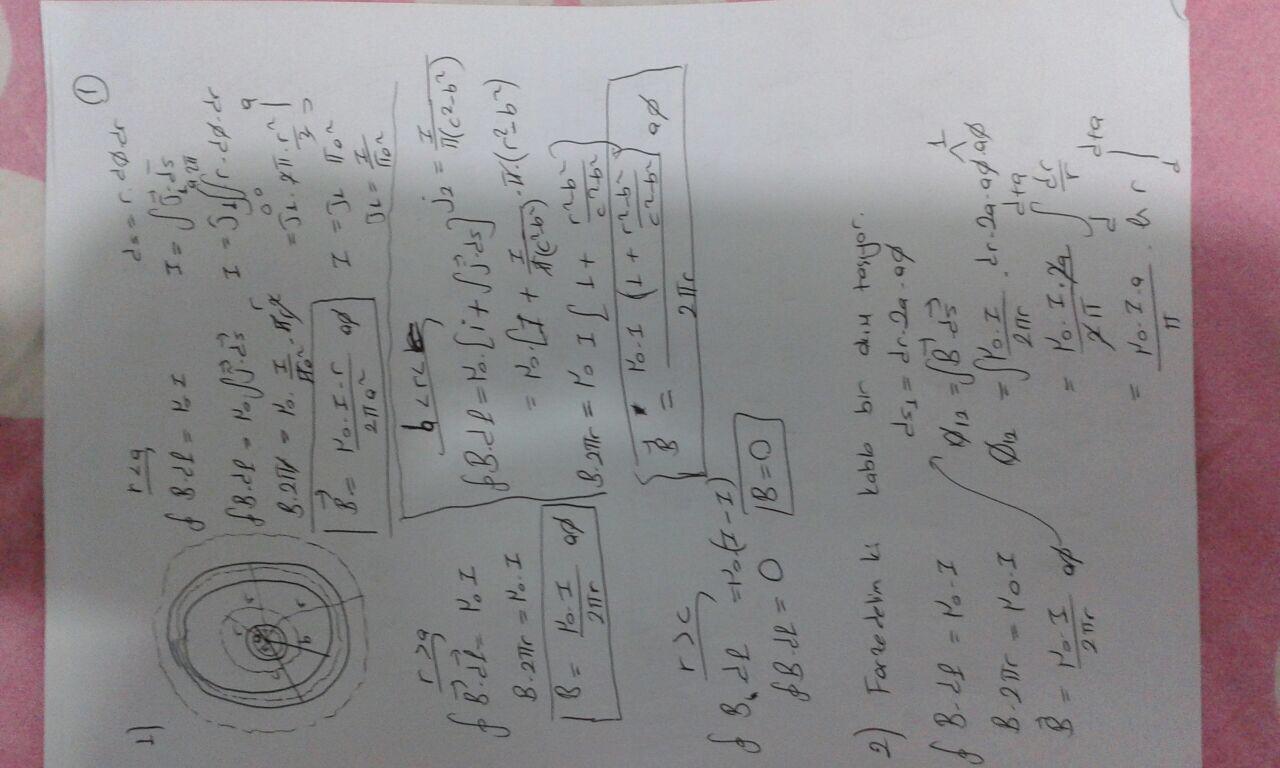 ①
1)
r<a
∮ B.dl = μ₀ I
∮B.dl = μ₀ ∫J⃗.ds⃗
B.2πr = μ₀ . I/πa² . πr²
B⃗ = μ₀.I.r/2πa² aφ
ds = r.dφ.dr
I = ∫J⃗₁.ds⃗
I = J₁ ∫₀ᵃ∫₀²π r.dφ.dr
= J₁ . 2π . r²/2 |₀ᵃ
I = J₁ πa²
J₁ = I/πa²
r>a
∮ B⃗.dl⃗ = μ₀ I
B.2πr = μ₀.I
B = μ₀.I/2πr aφ
b<r<
j₂ = I/π(c²-b²)
∮B.dl = μ₀.[i + ∫j⃗.ds]
= μ₀.[I + I/π(c²-b²) .π.(r²-b²)
B.2πr = μ₀ I [1 + r²-b²/c²-b²]
B⃗ = μ₀.I (1 + r²-b²/c²-b²)/2πr aφ
r>c
∮ B.dl = μ₀.(I-I)
∮B.dl = 0
B=0
2) Farzedelim ki kablo bir akım taşıyor.
∮ B.dl = μ₀.I
B.2πr = μ₀.I
B⃗ = μ₀.I/2πr aφ
ds₁ = dr.2a.aφ
Φ₁₂ = ∫B⃗.ds⃗
1
Φ₁₂ = ∫μ₀.I/2πr . dr.2a.aφ.aφ
= μ₀.I.2a/2π ∫_d^{d+a} dr/r
= μ₀.I.a/π . ln r |_d^{d+a}